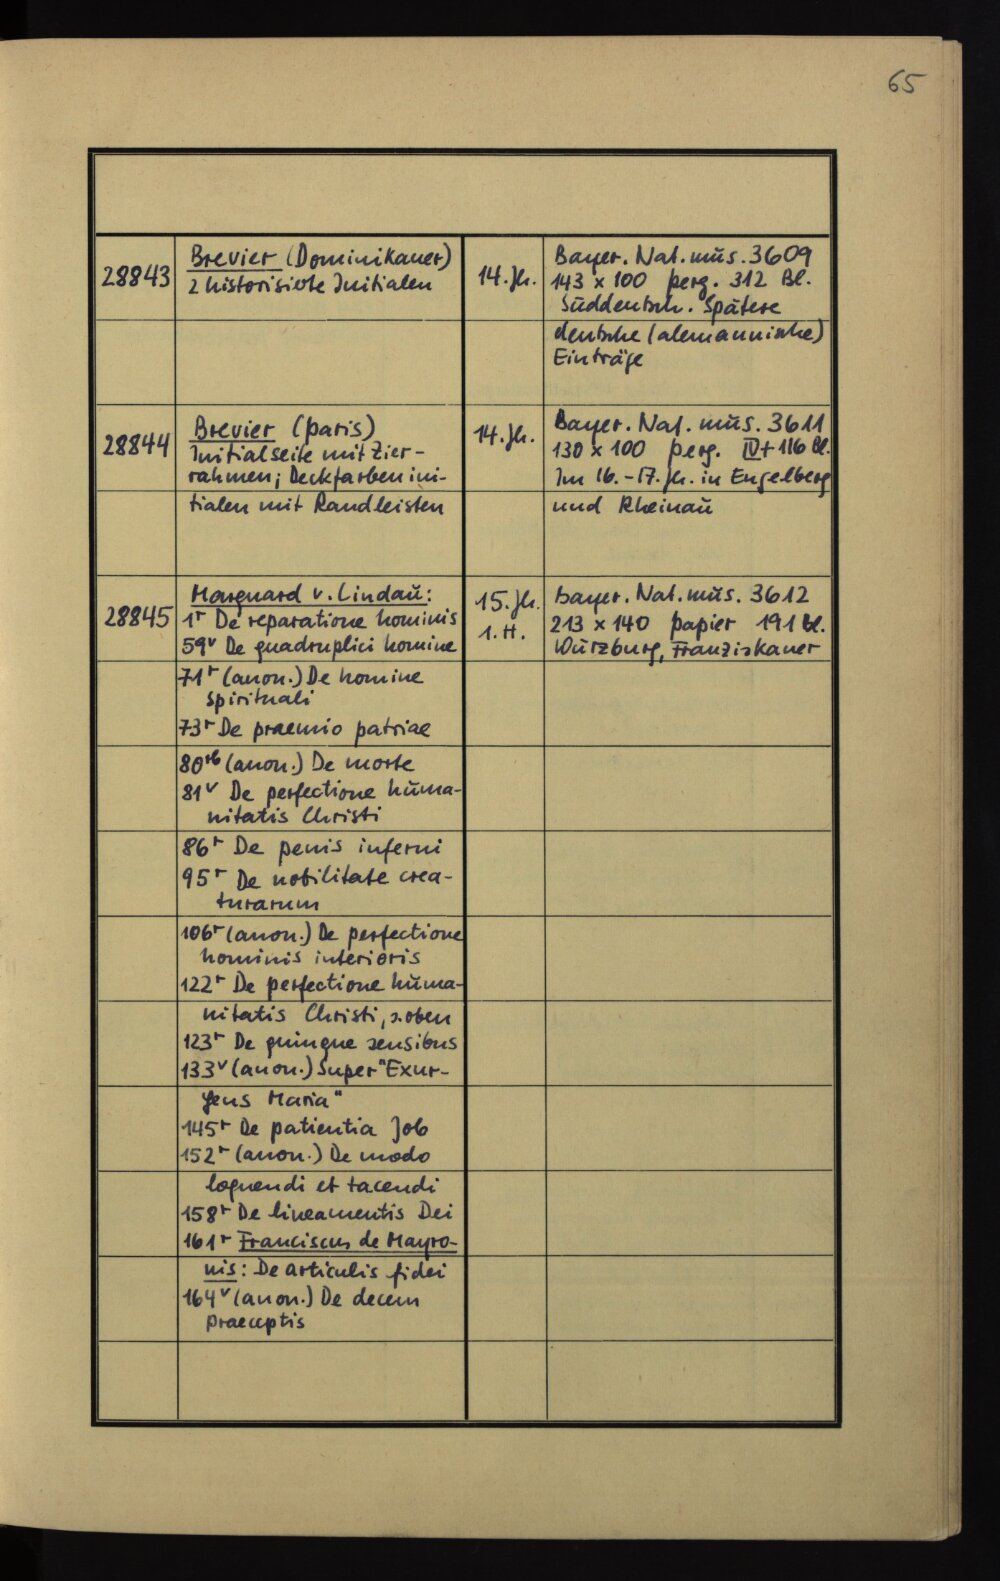 65
28843
Brevier (Dominikaner)
2 historisierte Initialen
14. Jh.
Bayer. Nat. mus. 3609
143 x 100 perg. 312 Bl.
Süddeutsch. Spätere
deutsche (alemannische)
Einträge
28844
Brevier (Paris)
Initialseite mit Zier-
rahmen; Deckfarbenini-
tialen mit Randleisten
14. Jh.
Bayer. Nat. mus. 3611
130 x 100 perg. IV + 116 Bl.
Im 16.-17. Jh. in Engelberg
und Rheinau
28845
Marquard v. Lindau:
1r De reparatione hominis
59v De quadruplici homine
71r (anon.) De homine
spirituali
73r De praemio patriae
80rb (anon.) De morte
81v De perfectione huma-
nitatis Christi
86r De penis inferni
95r De nobilitate crea-
turarum
106r (anon.) De perfectione
hominis interioris
122r De perfectione huma-
nitatis Christi, s. oben
123r De quinque sensibus
133v (anon.) Super "Exur-
gens Maria"
145r De patientia Job
152r (anon.) De modo
loquendi et tacendi
158r De lineamentis Dei
161r Franciscus de Mayro-
nis: De articulis fidei
164v (anon.) De decem
praeceptis
15. Jh.
1. H.
Bayer. Nat. mus. 3612
213 x 140 papier 191 Bl.
Würzburg, Franziskaner